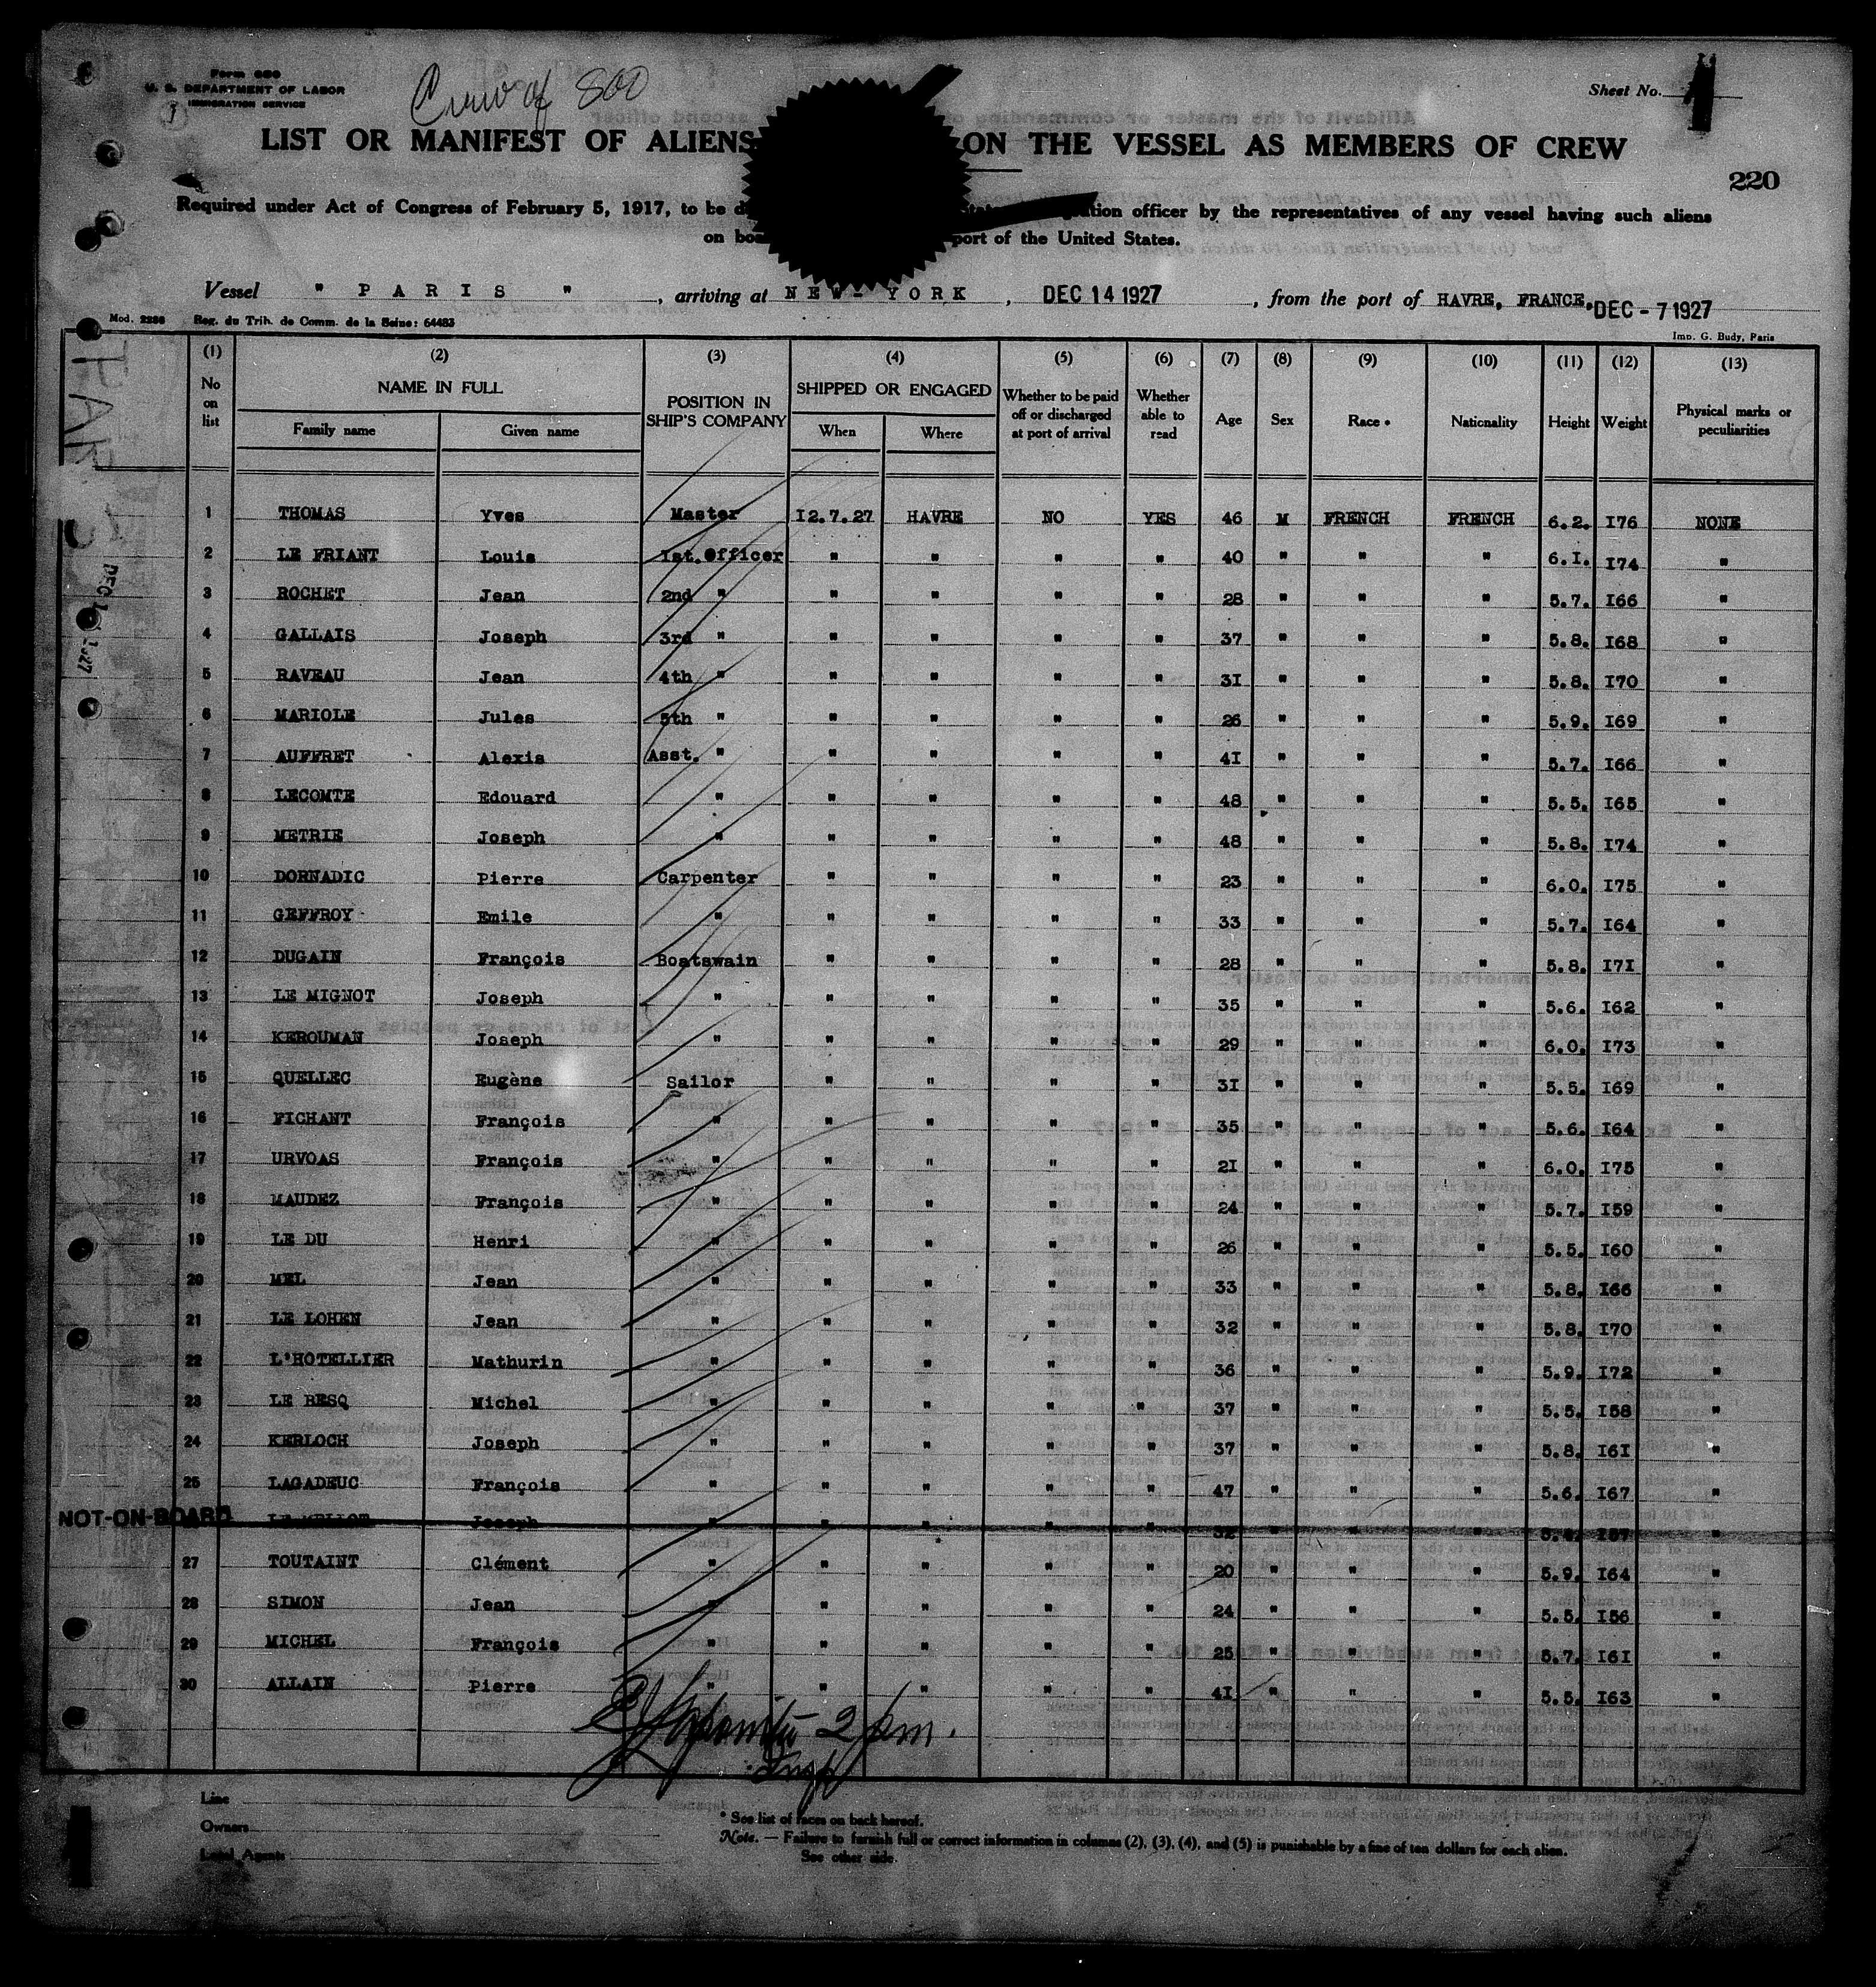 Form 680
U. S. DEPARTMENT OF LABOR
IMMIGRATION SERVICE
Crew of 800
Sheet No. 1
LIST OR MANIFEST OF ALIENS ON THE VESSEL AS MEMBERS OF CREW
220
Required under Act of Congress of February 5, 1917, to be officer by the representatives of any vessel having such aliens
on port of the United States.
Vessel " PARIS ", arriving at NEW-YORK, DEC 14 1927, from the port of HAVRE, FRANCE. DEC - 7 1927
Mod. 2286 Reg. du Trib. de Comm. de la Seine: 64483
Imp. G. Budy, Paris
(1) (2) (3) (4) (5) (6) (7) (8) (9) (10) (11) (12) (13)
No on list NAME IN FULL Family name Given name POSITION IN SHIP'S COMPANY SHIPPED OR ENGAGED When Where Whether to be paid off or discharged at port of arrival Whether able to read Age Sex Race * Nationality Height Weight Physical marks or peculiarities
1 THOMAS Yves Master 12.7.27 HAVRE NO YES 46 M FRENCH FRENCH 6.2. I76 NONE
2 LE FRIANT Louis 1st.Officer " " " " 40 " " " 6.I. I74 "
3 ROCHET Jean 2nd " " " " " 28 " " " 5.7. I66 "
4 GALLAIS Joseph 3rd " " " " " 37 " " " 5.8. I68 "
5 RAVEAU Jean 4th " " " " " 3I " " " 5.8. I70 "
6 MARIOLE Jules 5th " " " " " 26 " " " 5.9. I69 "
7 AUFFRET Alexis Asst. " " " " " 4I " " " 5.7. I66 "
8 LECOMTE Edouard " " " " " 48 " " " 5.5. I65 "
9 METRIE Joseph " " " " " 48 " " " 5.8. I74 "
10 DORNADIC Pierre Carpenter " " " " 23 " " " 6.0. I75 "
11 GEFFROY Emile " " " " " 33 " " " 5.7. I64 "
12 DUGAIN François Boatswain " " " " 28 " " " 5.8. I7I "
13 LE MIGNOT Joseph " " " " " 35 " " " 5.6. I62 "
14 KEROUMAN Joseph " " " " " 29 " " " 6.0. I73 "
15 QUELLEC Eugène Sailor " " " " 3I " " " 5.5. I69 "
16 FICHANT François " " " " " 35 " " " 5.6. I64 "
17 URVOAS François " " " " " 2I " " " 6.0. I75 "
18 MAUDEZ François " " " " " 24 " " " 5.7. I59 "
19 LE DU Henri " " " " " 26 " " " 5.5. I60 "
20 MEL Jean " " " " " 33 " " " 5.8. I66 "
21 LE LOHEN Jean " " " " " 32 " " " 5.8. I70 "
22 L'HOTELLIER Mathurin " " " " " 36 " " " 5.9. I72 "
23 LE BESQ Michel " " " " " 37 " " " 5.5. I58 "
24 KERLOCH Joseph " " " " " 37 " " " 5.8. I6I "
25 LAGADEUC François " " " " " 47 " " " 5.6. I67 "
NOT-ON-BOARD Joseph " " " " " 32 " " " 5.4. I57 "
27 TOUTAINT Clément " " " " " 20 " " " 5.9. I64 "
28 SIMON Jean " " " " " 24 " " " 5.5. I56 "
29 MICHEL François " " " " " 25 " " " 5.7. I6I "
30 ALLAIN Pierre " " " " " 4I " " " 5.5. I63 "
2 pm.
Insp
Line
Owners
Local Agents
* See list of races on back hereof.
Note. — Failure to furnish full or correct information in columns (2), (3), (4), and (5) is punishable by a fine of ten dollars for each alien.
See other side.